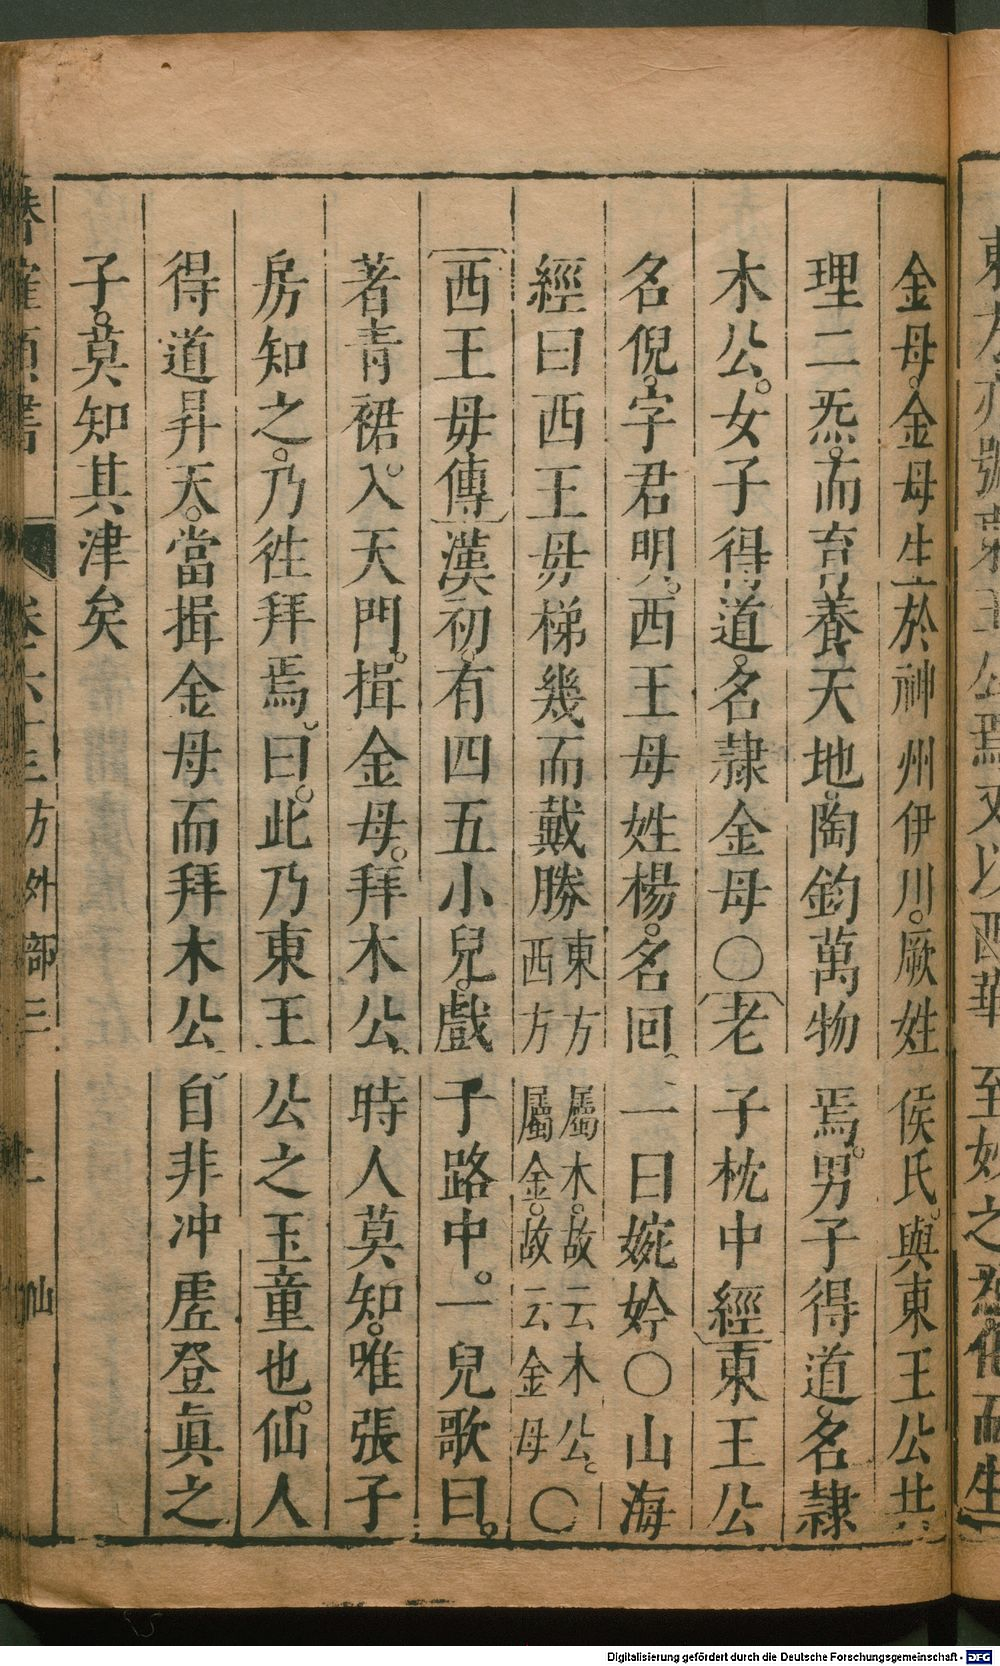 金母。金母生於神州伊川。厥姓侯氏。與東王公共
理二炁。而育養天地。陶鈞萬物焉。男子得道。名隷
木公。女子得道。名隷金母〇老子枕中經東王公
名倪。字君明。西王母姓楊。名囘。一曰婉妗〇山海
經曰西王毋梯幾而戴勝東方屬木。故云木公。西方屬金。故云金母〇
西王毋傳漢初。有四五小兒。戲于路中。一兒歌曰。
著青裙。入天門。揖金母。拜木公。時人莫知。唯張子
房知之。乃徃拜焉。曰。此乃東王公之玉童也。仙人
得道昇天。當揖金母而拜木公。自非冲虗登眞之
子。莫知其津矣
方外部三
仙
至妙之
而生
Digitalisierung gefördert durch die Deutsche Forschungsgemeinschaft - DFG